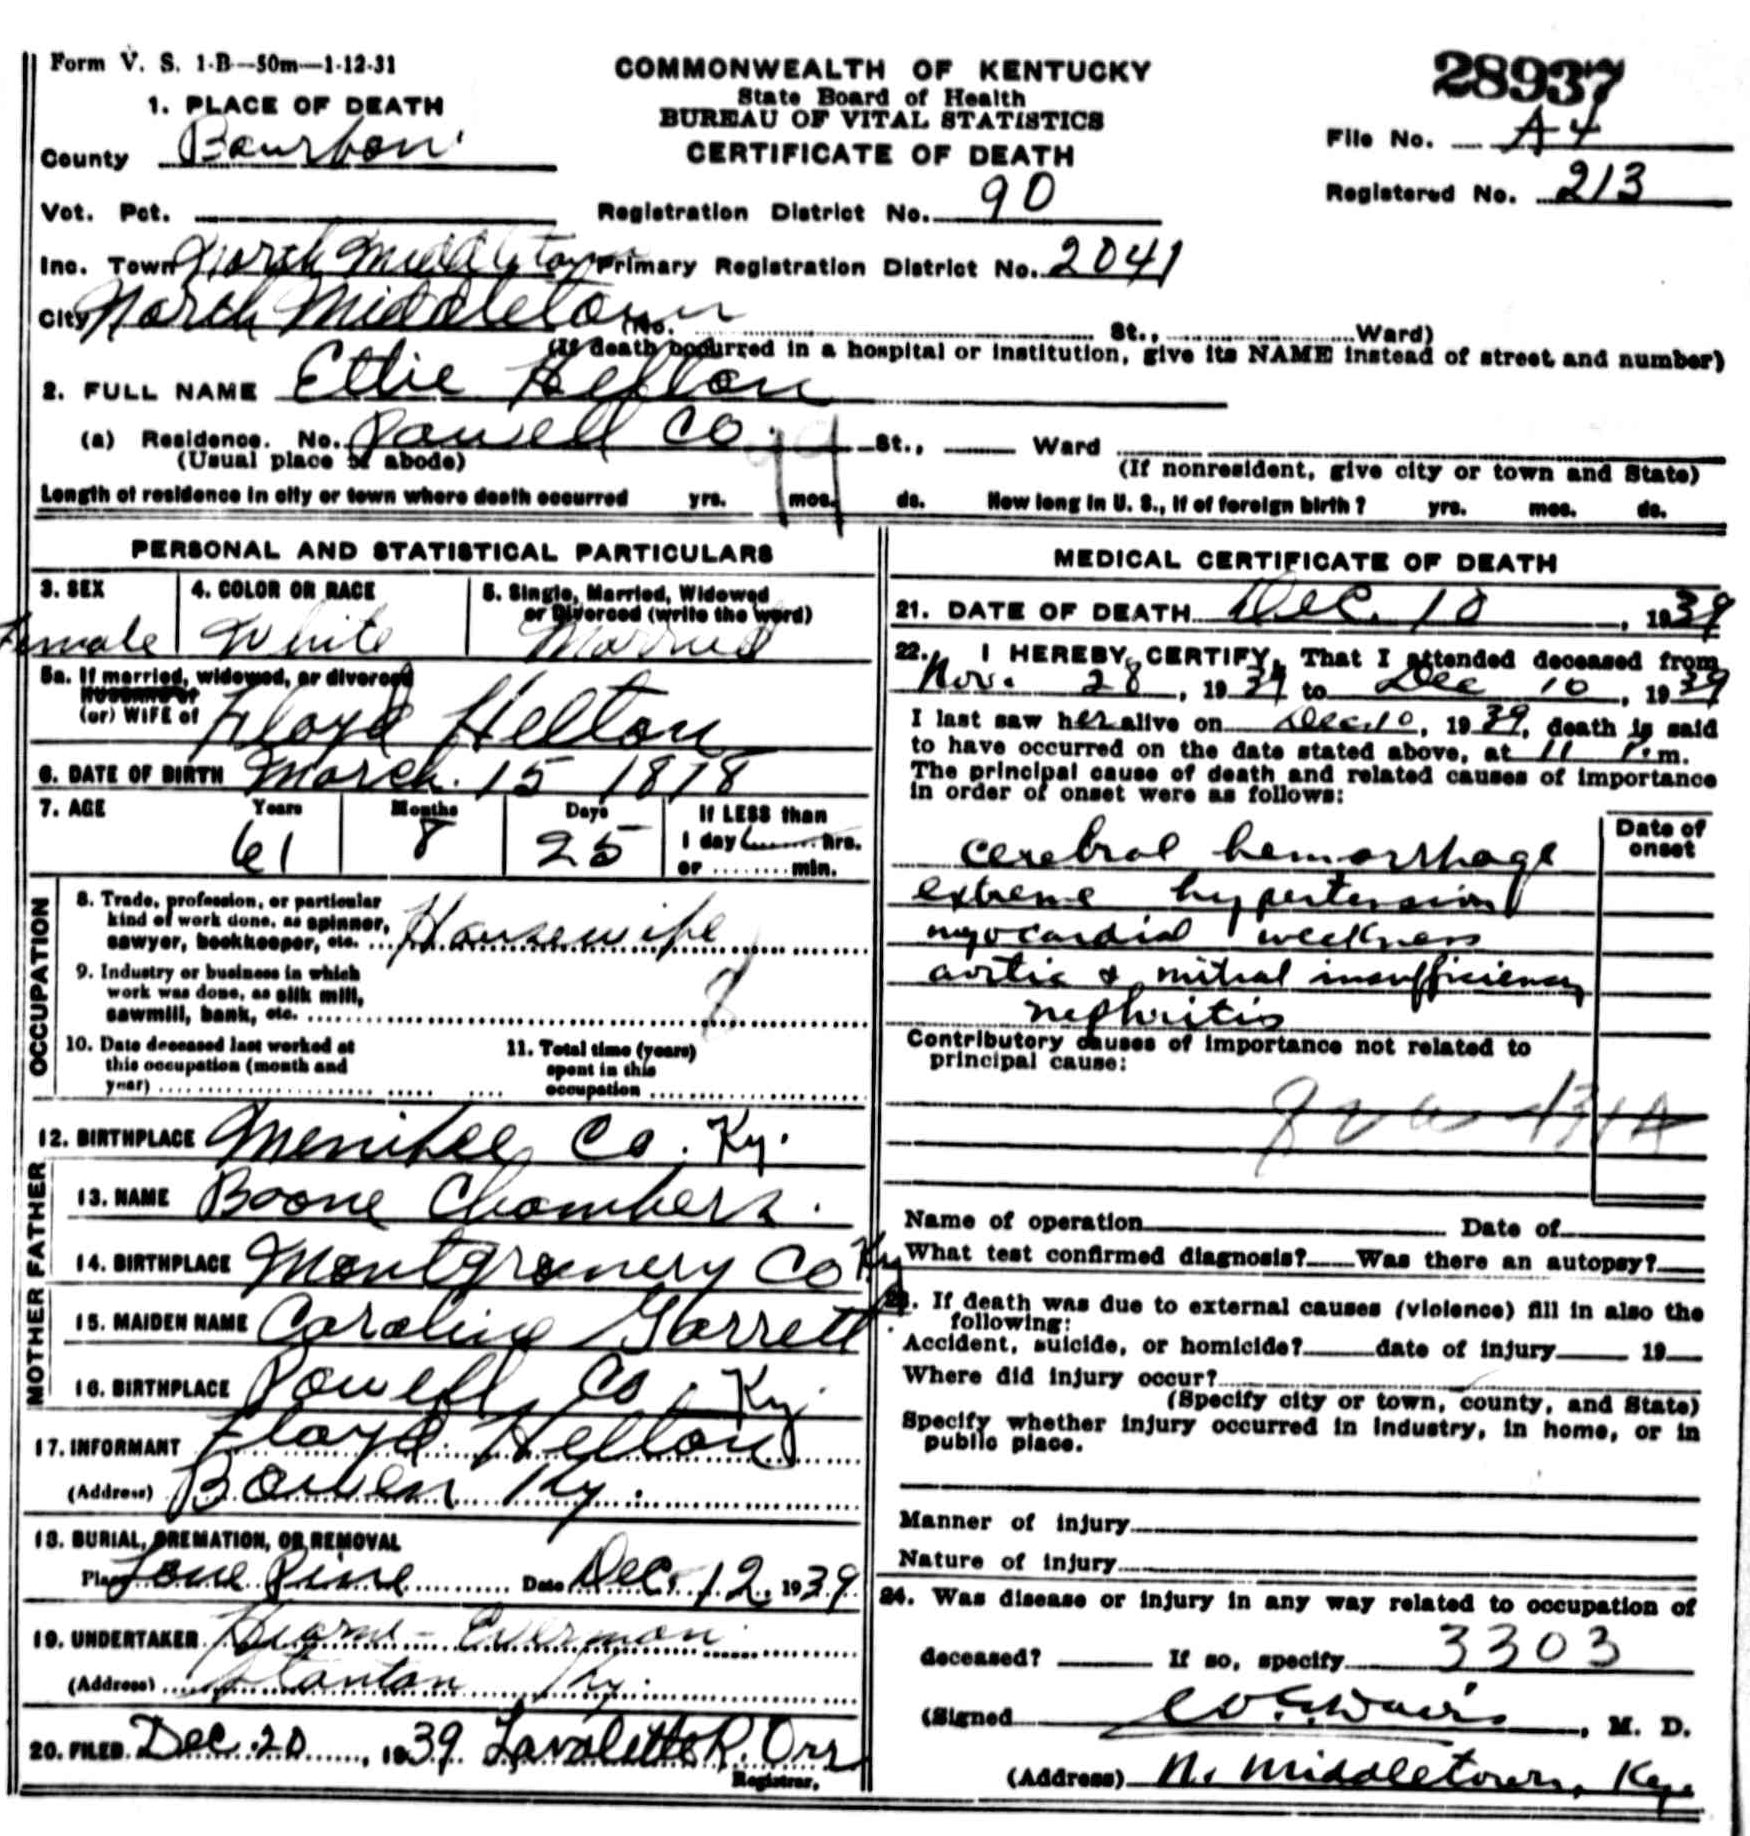 Form V. S. 1-B—50m—1-12-31
COMMONWEALTH OF KENTUCKY
State Board of Health
BUREAU OF VITAL STATISTICS
CERTIFICATE OF DEATH
28937
File No. A4
Registered No. 213
1. PLACE OF DEATH
County Bourbon
Vot. Pct.
Registration District No. 90
Inc. Town North Middletown Primary Registration District No. 2041
City North Middletown (No. St., Ward)
(If death occurred in a hospital or institution, give its NAME instead of street and number)
2. FULL NAME Ellie Helton
(a) Residence. No. Powell Co. St., Ward
(Usual place of abode) (If nonresident, give city or town and State)
Length of residence in city or town where death occurred yrs. mos. ds. How long in U. S., if of foreign birth? yrs. mos. ds.
PERSONAL AND STATISTICAL PARTICULARS
3. SEX 4. COLOR OR RACE 5. Single, Married, Widowed
or Divorced (write the word)
Female White Married
5a. If married, widowed, or divorced
HUSBAND of
(or) WIFE of Floyd Helton
6. DATE OF BIRTH March. 15 1878
7. AGE Years Months Days If LESS than
61 8 25 1 day hrs.
or min.
OCCUPATION
8. Trade, profession, or particular
kind of work done, as spinner,
sawyer, bookkeeper, etc. Housewife
9. Industry or business in which
work was done, as silk mill,
sawmill, bank, etc.
10. Date deceased last worked at
this occupation (month and
year)
11. Total time (years)
spent in this
occupation
12. BIRTHPLACE Menifee Co. Ky.
FATHER
13. NAME Boone Chambers.
14. BIRTHPLACE Montgomery Co Ky
MOTHER
15. MAIDEN NAME Caroline Garrett
16. BIRTHPLACE Powell Co. Ky
17. INFORMANT Floyd Helton
(Address) Bowen Ky.
18. BURIAL, CREMATION, OR REMOVAL
Place Lone Pine Date Dec. 12. 1939
19. UNDERTAKER Hearne - Everman
(Address) Stanton Ky.
20. FILED Dec. 20, 1939 Lavalette R. Orr
Registrar.
MEDICAL CERTIFICATE OF DEATH
21. DATE OF DEATH Dec. 10, 1939
22. I HEREBY CERTIFY, That I attended deceased from
Nov. 28, 1939 to Dec 10, 1939
I last saw her alive on Dec. 10, 1939, death is said
to have occurred on the date stated above, at 11 P.m.
The principal cause of death and related causes of importance
in order of onset were as follows:
Date of
onset
cerebral hemorrhage
extreme hypertension
myocardial weekness
aortic & mitral insufficiency
nephritis
Contributory causes of importance not related to
principal cause:
131A
Name of operation Date of
What test confirmed diagnosis? Was there an autopsy?
23. If death was due to external causes (violence) fill in also the
following:
Accident, suicide, or homicide? date of injury 19
Where did injury occur?
(Specify city or town, county, and State)
Specify whether injury occurred in industry, in home, or in
public place.
Manner of injury
Nature of injury
24. Was disease or injury in any way related to occupation of
deceased? If so, specify 3303
(Signed Davis, M. D.
(Address) N. Middletown, Ky.